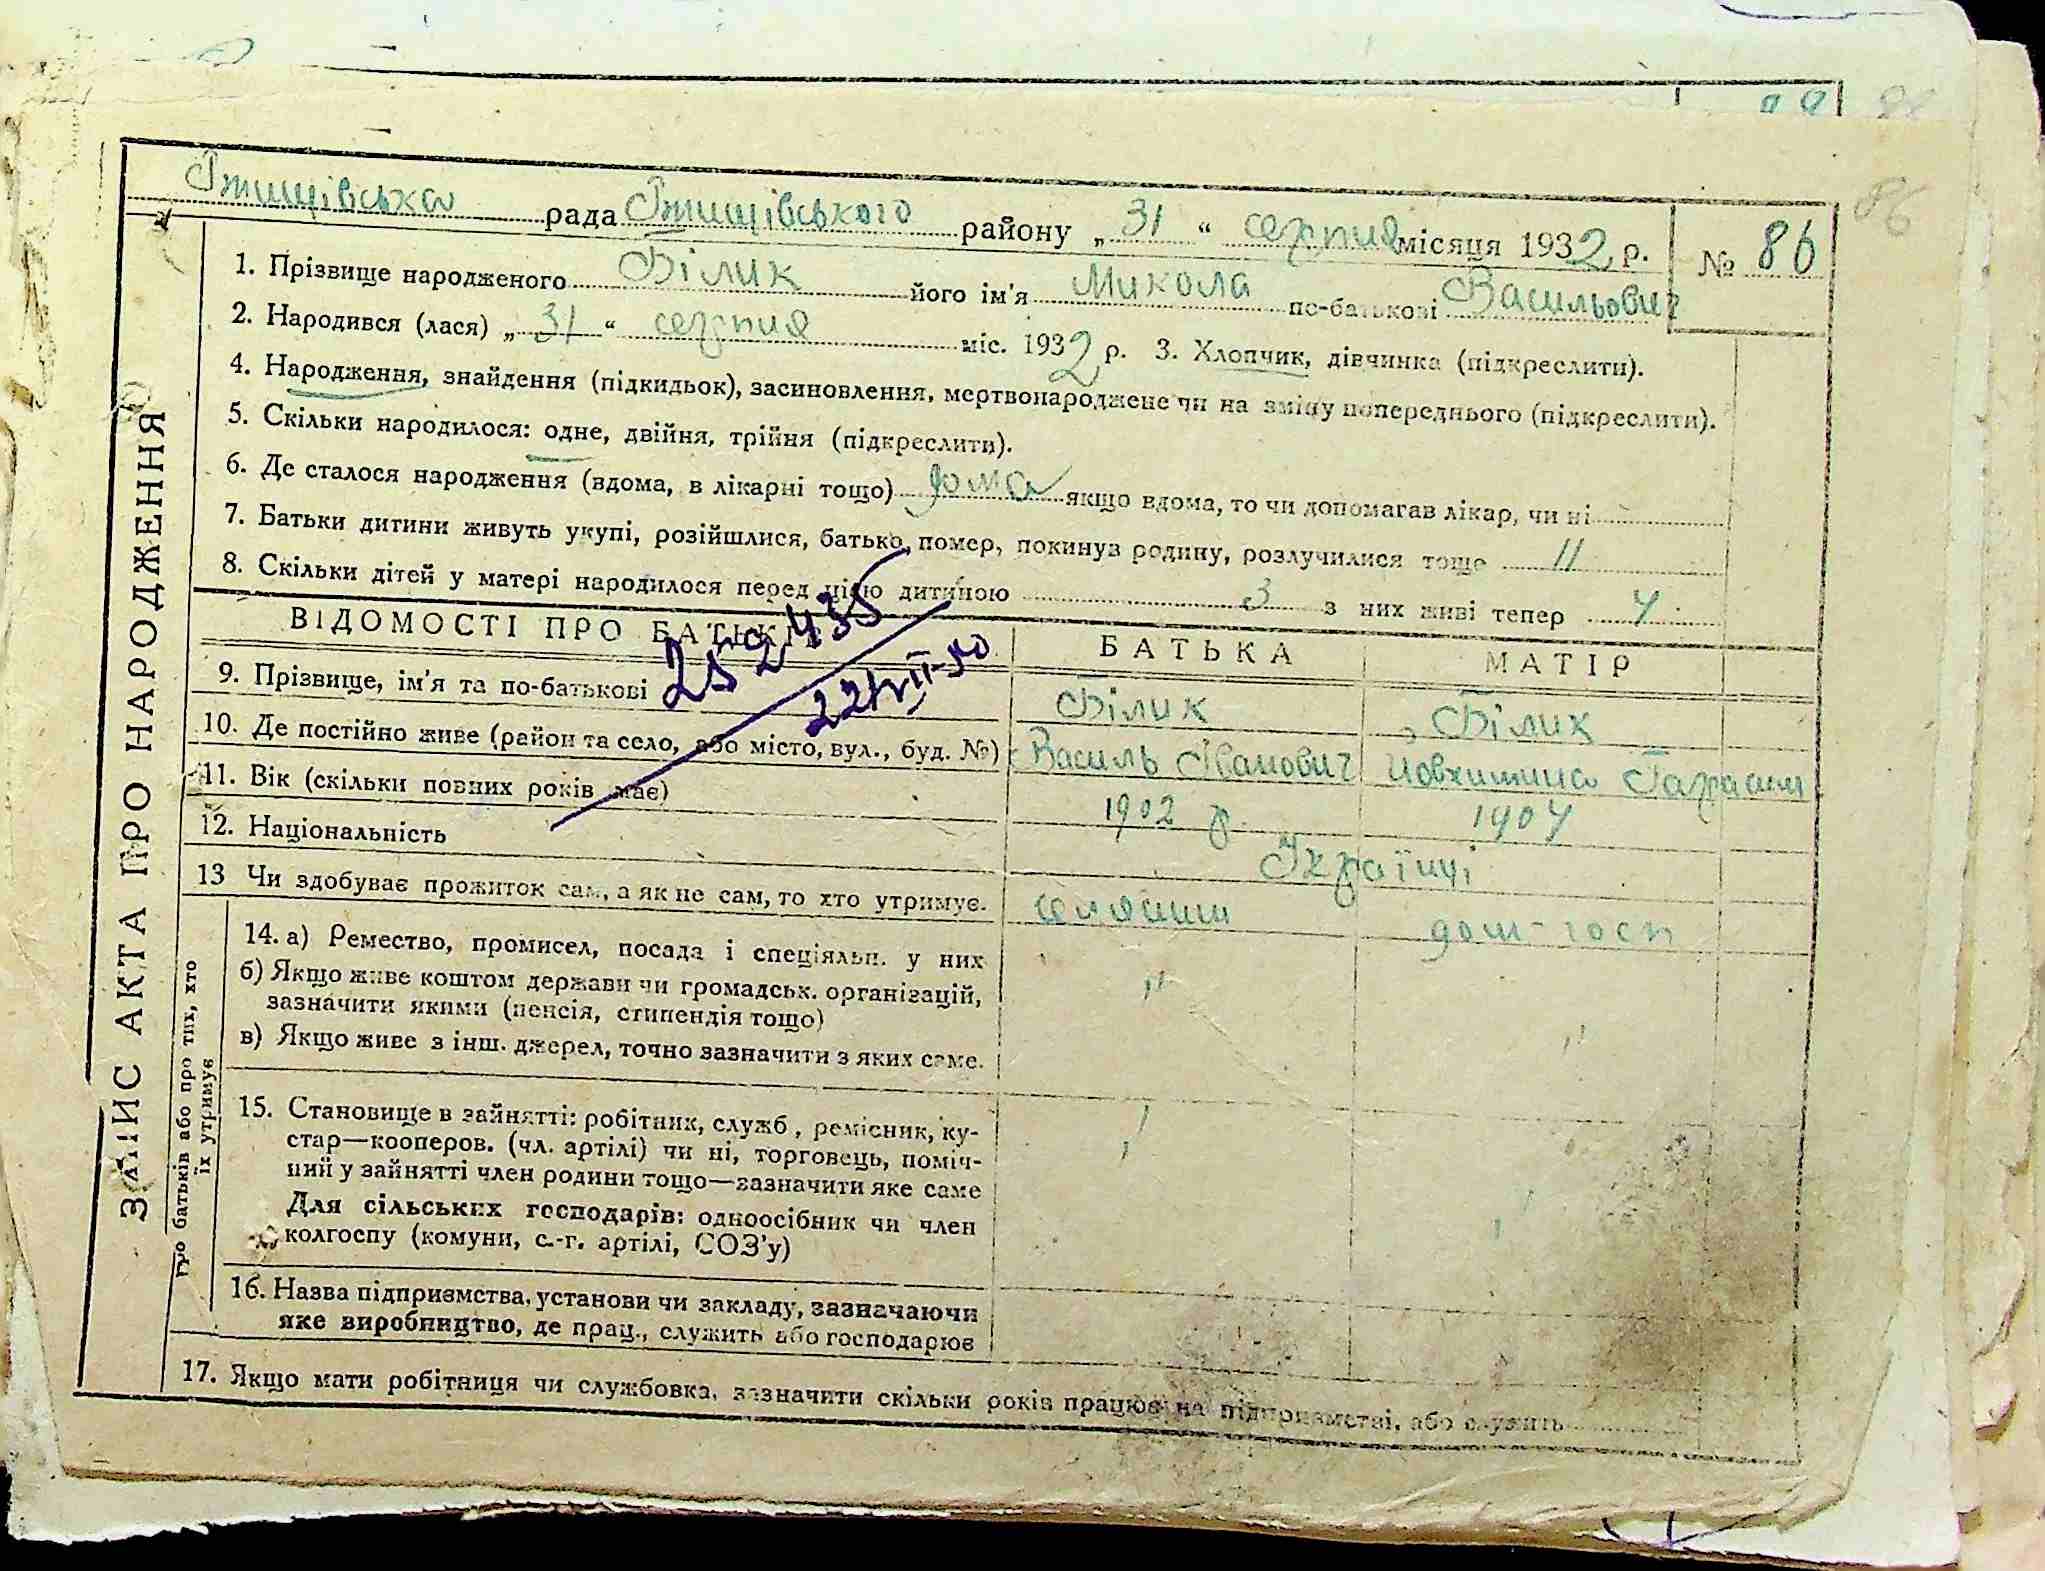 Ржищівська рада Ржищівського району „ 31 “ серпня місяця 1932 р.
№ 86
86
1. Прізвище народженого Білик його ім'я Микола по-батькові Васильович
2. Народився (лася) „ 31 “ серпня міс. 1932 р. 3. Хлопчик, дівчинка (підкреслити).
4. Народження, знайдення (підкидьок), засиновлення, мертвонароджене чи на зміну попереднього (підкреслити).
5. Скільки народилося: одне, двійня, трійня (підкреслити).
6. Де сталося народження (вдома, в лікарні тощо) дома якщо вдома, то чи допомагав лікар, чи ні
7. Батьки дитини живуть укупі, розійшлися, батько помер, покинув родину, розлучилися тоще "
8. Скільки дітей у матері народилося перед цією дитиною 3 з них живі тепер 4
ВІДОМОСТІ ПРО БАТЬКІВ БАТЬКА МАТІР
9. Прізвище, ім'я та по-батькові Білик Білик
10. Де постійно живе (район та село, або місто, вул., буд. №) Василь Іванович
11. Вік (скільки повних років має) 1902 р. 1904
12. Національність Українці
13 Чи здобуває прожиток сам, а як не сам, то хто утримує. селянин дом-госп
14. а) Ремество, промисел, посада і спеціяльн. у них
б) Якщо живе коштом держави чи громадськ. організацій,
зазначити якими (пенсія, стипендія тощо)
в) Якщо живе з інш. джерел, точно зазначити з яких саме.
15. Становище в зайнятті: робітник, служб , ремісник, ку-
стар—кооперов. (чл. артілі) чи ні, торговець, поміч-
ний у зайнятті член родини тощо—зазначити яке саме
Для сільських господарів: одноосібник чи член
колгоспу (комуни, с.-г. артілі, СОЗ'у)
16. Назва підприємства, установи чи закладу, зазначаючи
яке виробництво, де прац., служить або господарює
17. Якщо мати робітниця чи службовка, зазначити скільки років працює на підприємстві, або служить
ЗАПИС АКТА ПРО НАРОДЖЕННЯ
про батьків або про тих, хто
їх утримує